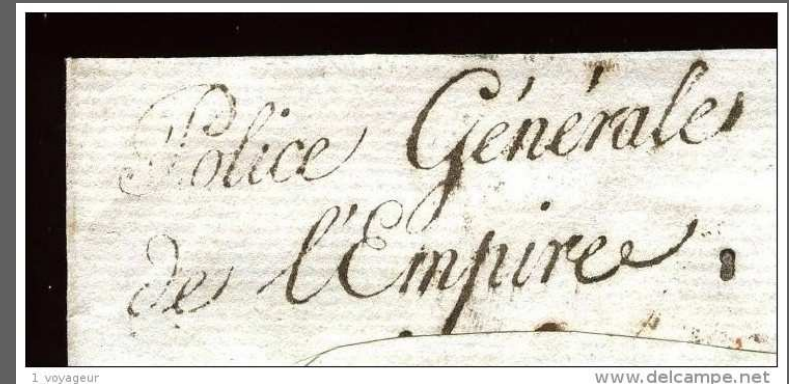 Police Générale
de l'Empire.
1 voyageur
www.delcampe.net